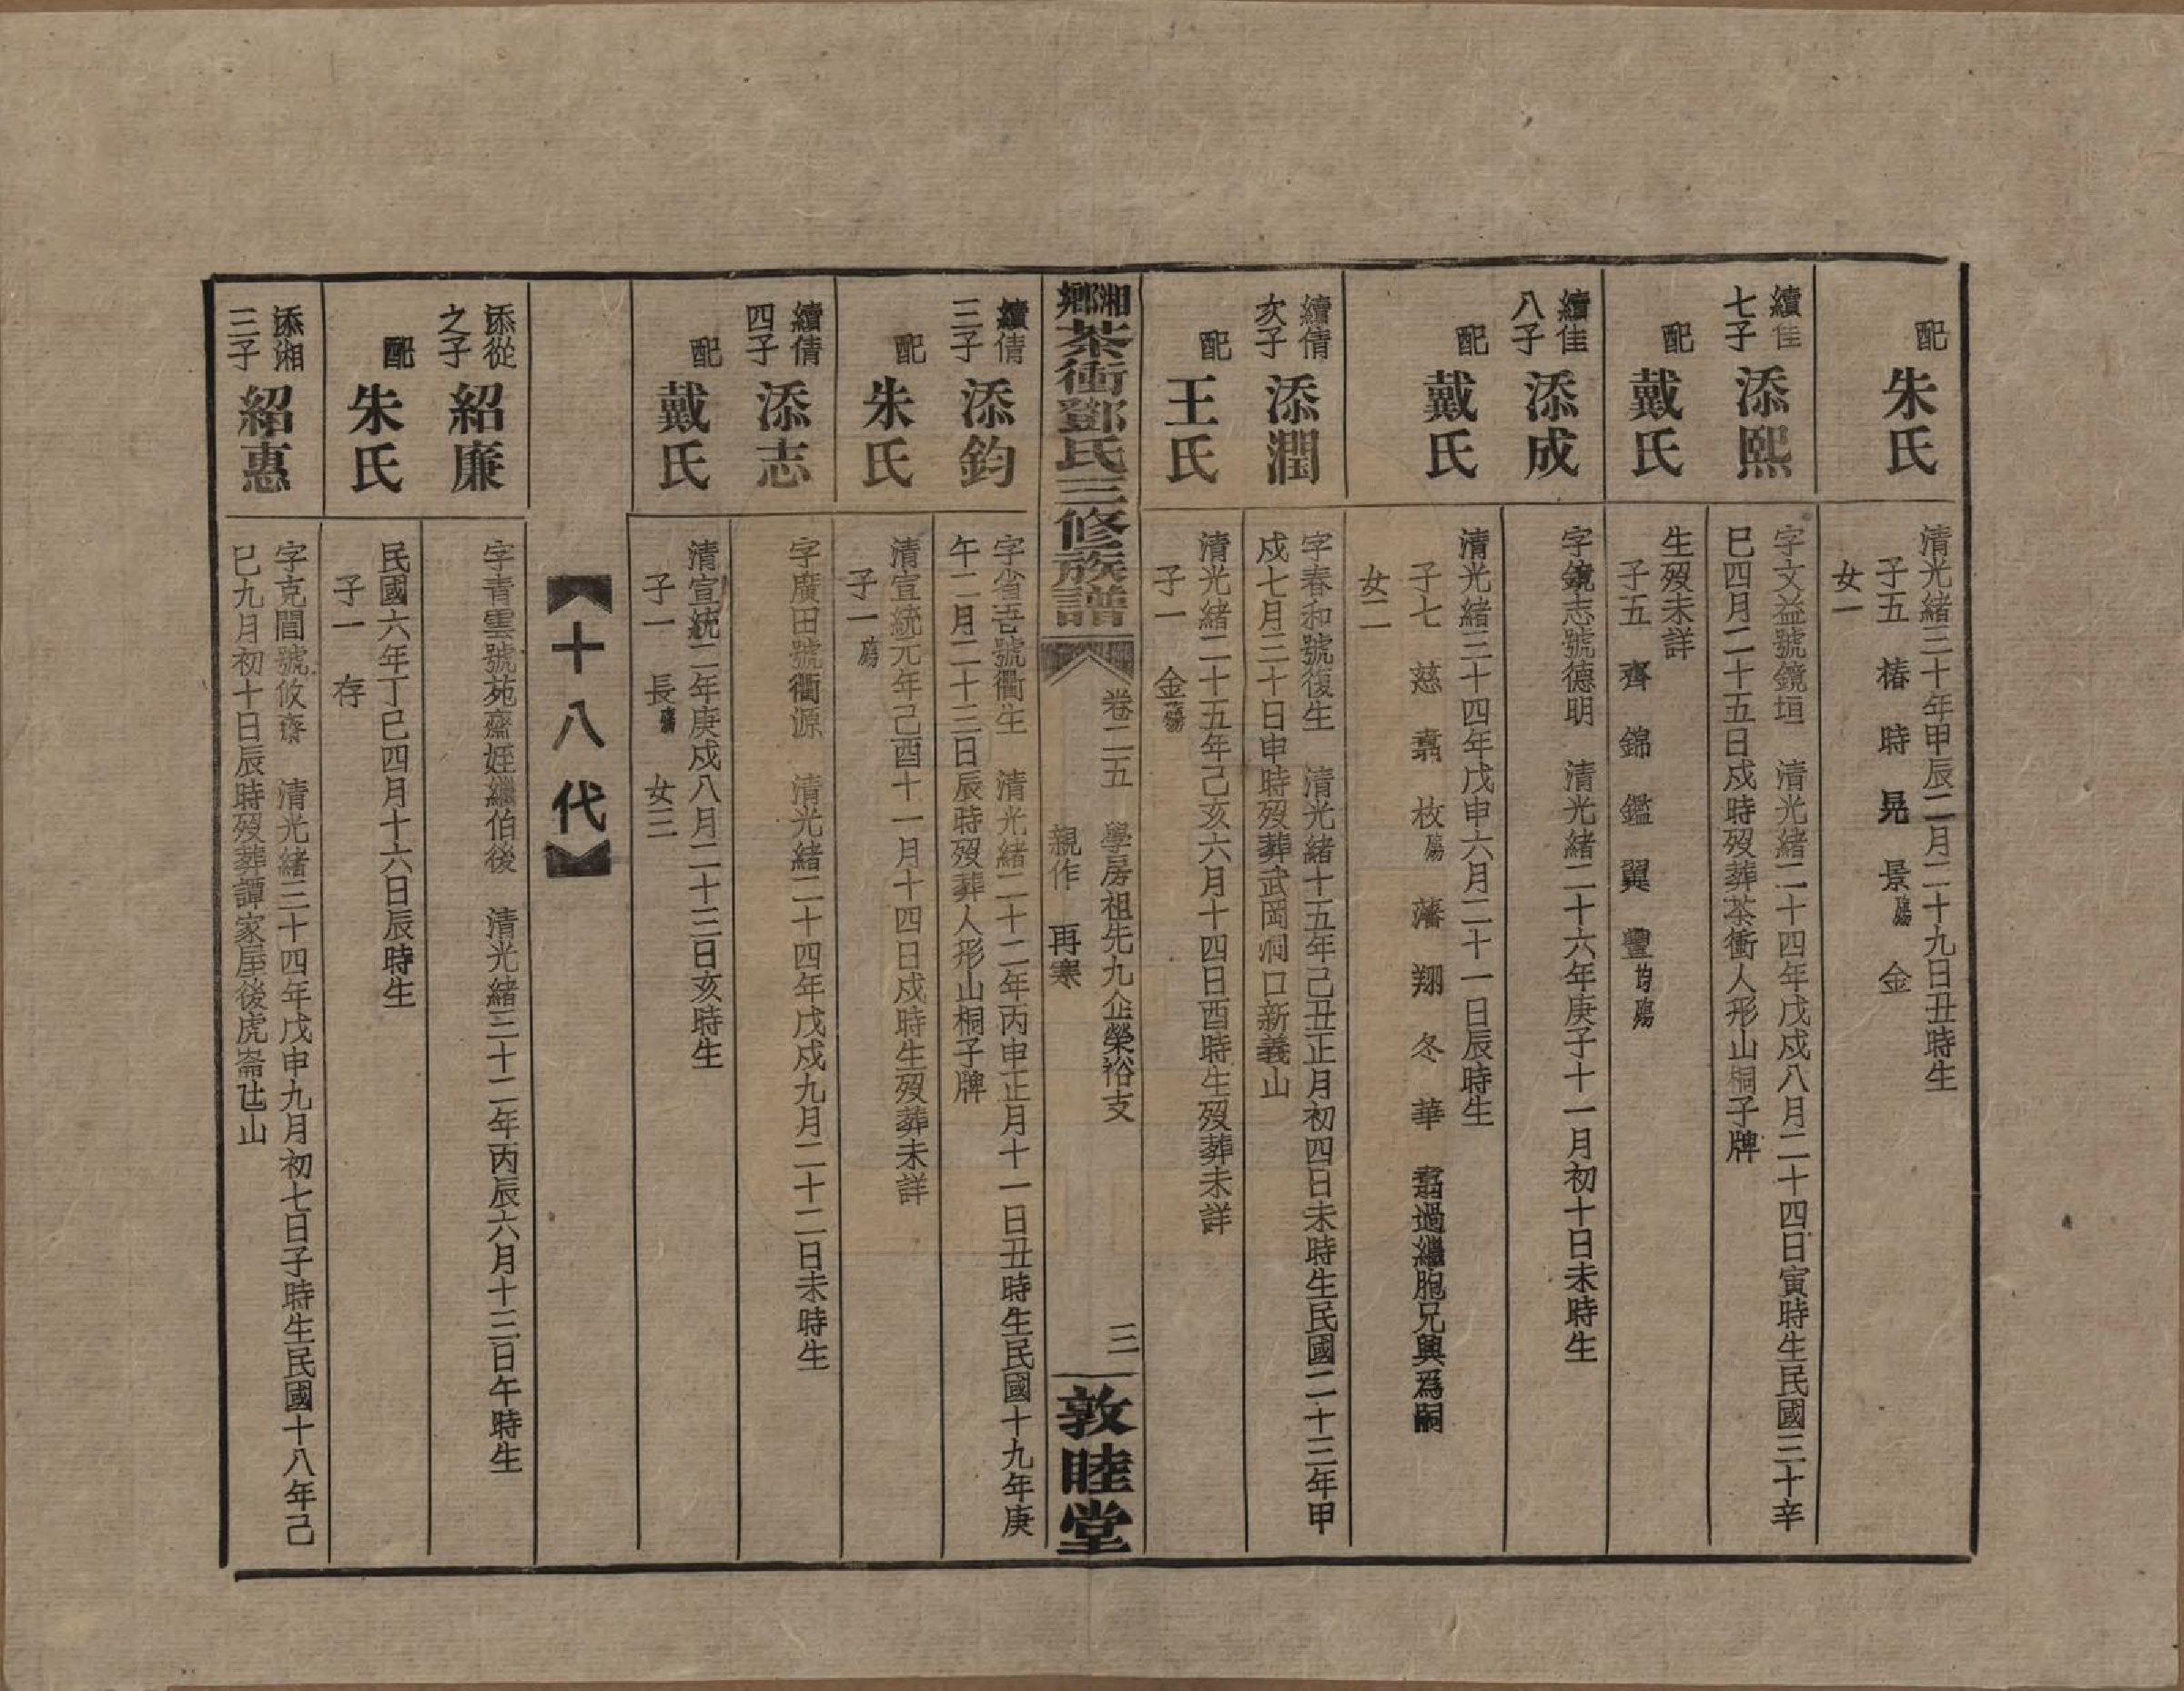 配
朱氏
清光緒三十年甲辰二月二十九日丑時生
子五 椿 時 晃 景殤 金
女一
續佳
七子
添熙
字文益號鏡垣 清光緒二十四年戊戌八月二十四日寅時生民國三十辛
巳四月二十五日戌時歿葬茶衝人形山桐子牌
配
戴氏
生歿未詳
子五 齊 錦 鑑 翼 豐均殤
續佳
八子
添成
字鏡志號德明 清光緒二十六年庚子十一月初十日未時生
配
戴氏
清光緒三十四年戊申六月二十一日辰時生
子七 慈 翥 枚殤 藩 翔 冬 華 翥過繼胞兄興爲嗣
女二
續倩
次子
添潤
字春和號復生 清光緒十五年己丑正月初四日未時生民國二十三年甲
戌七月三十日申時歿葬武岡洞口新義山
配
王氏
清光緒二十五年己亥六月十四日酉時生歿葬未詳
子一 金殤
湘鄉茶衝鄧氏三修族譜
卷二五 學房祖先九企榮裕支
親作 再寒
三
敦睦堂
續倩
三子
添鈞
字省吾號衢生 清光緒二十二年丙申正月十一日丑時生民國十九年庚
午二月二十三日辰時歿葬人形山桐子牌
配
朱氏
清宣統元年己酉十一月十四日戌時生歿葬未詳
子一殤
續倩
四子
添志
字廣田號衢源 清光緒二十四年戊戌九月二十二日未時生
配
戴氏
清宣統二年庚戌八月二十三日亥時生
子一 長殤 女三
【十八代】
添從
之子
紹廉
字青雲號苑齋姪繼伯後 清光緒三十二年丙辰六月十三日午時生
配
朱氏
民國六年丁巳四月十六日辰時生
子一 存
添湘
三子
紹惠
字克誾號攸齋 清光緒三十四年戊申九月初七日子時生民國十八年己
巳九月初十日辰時歿葬譚家屋後虎崙㐌山